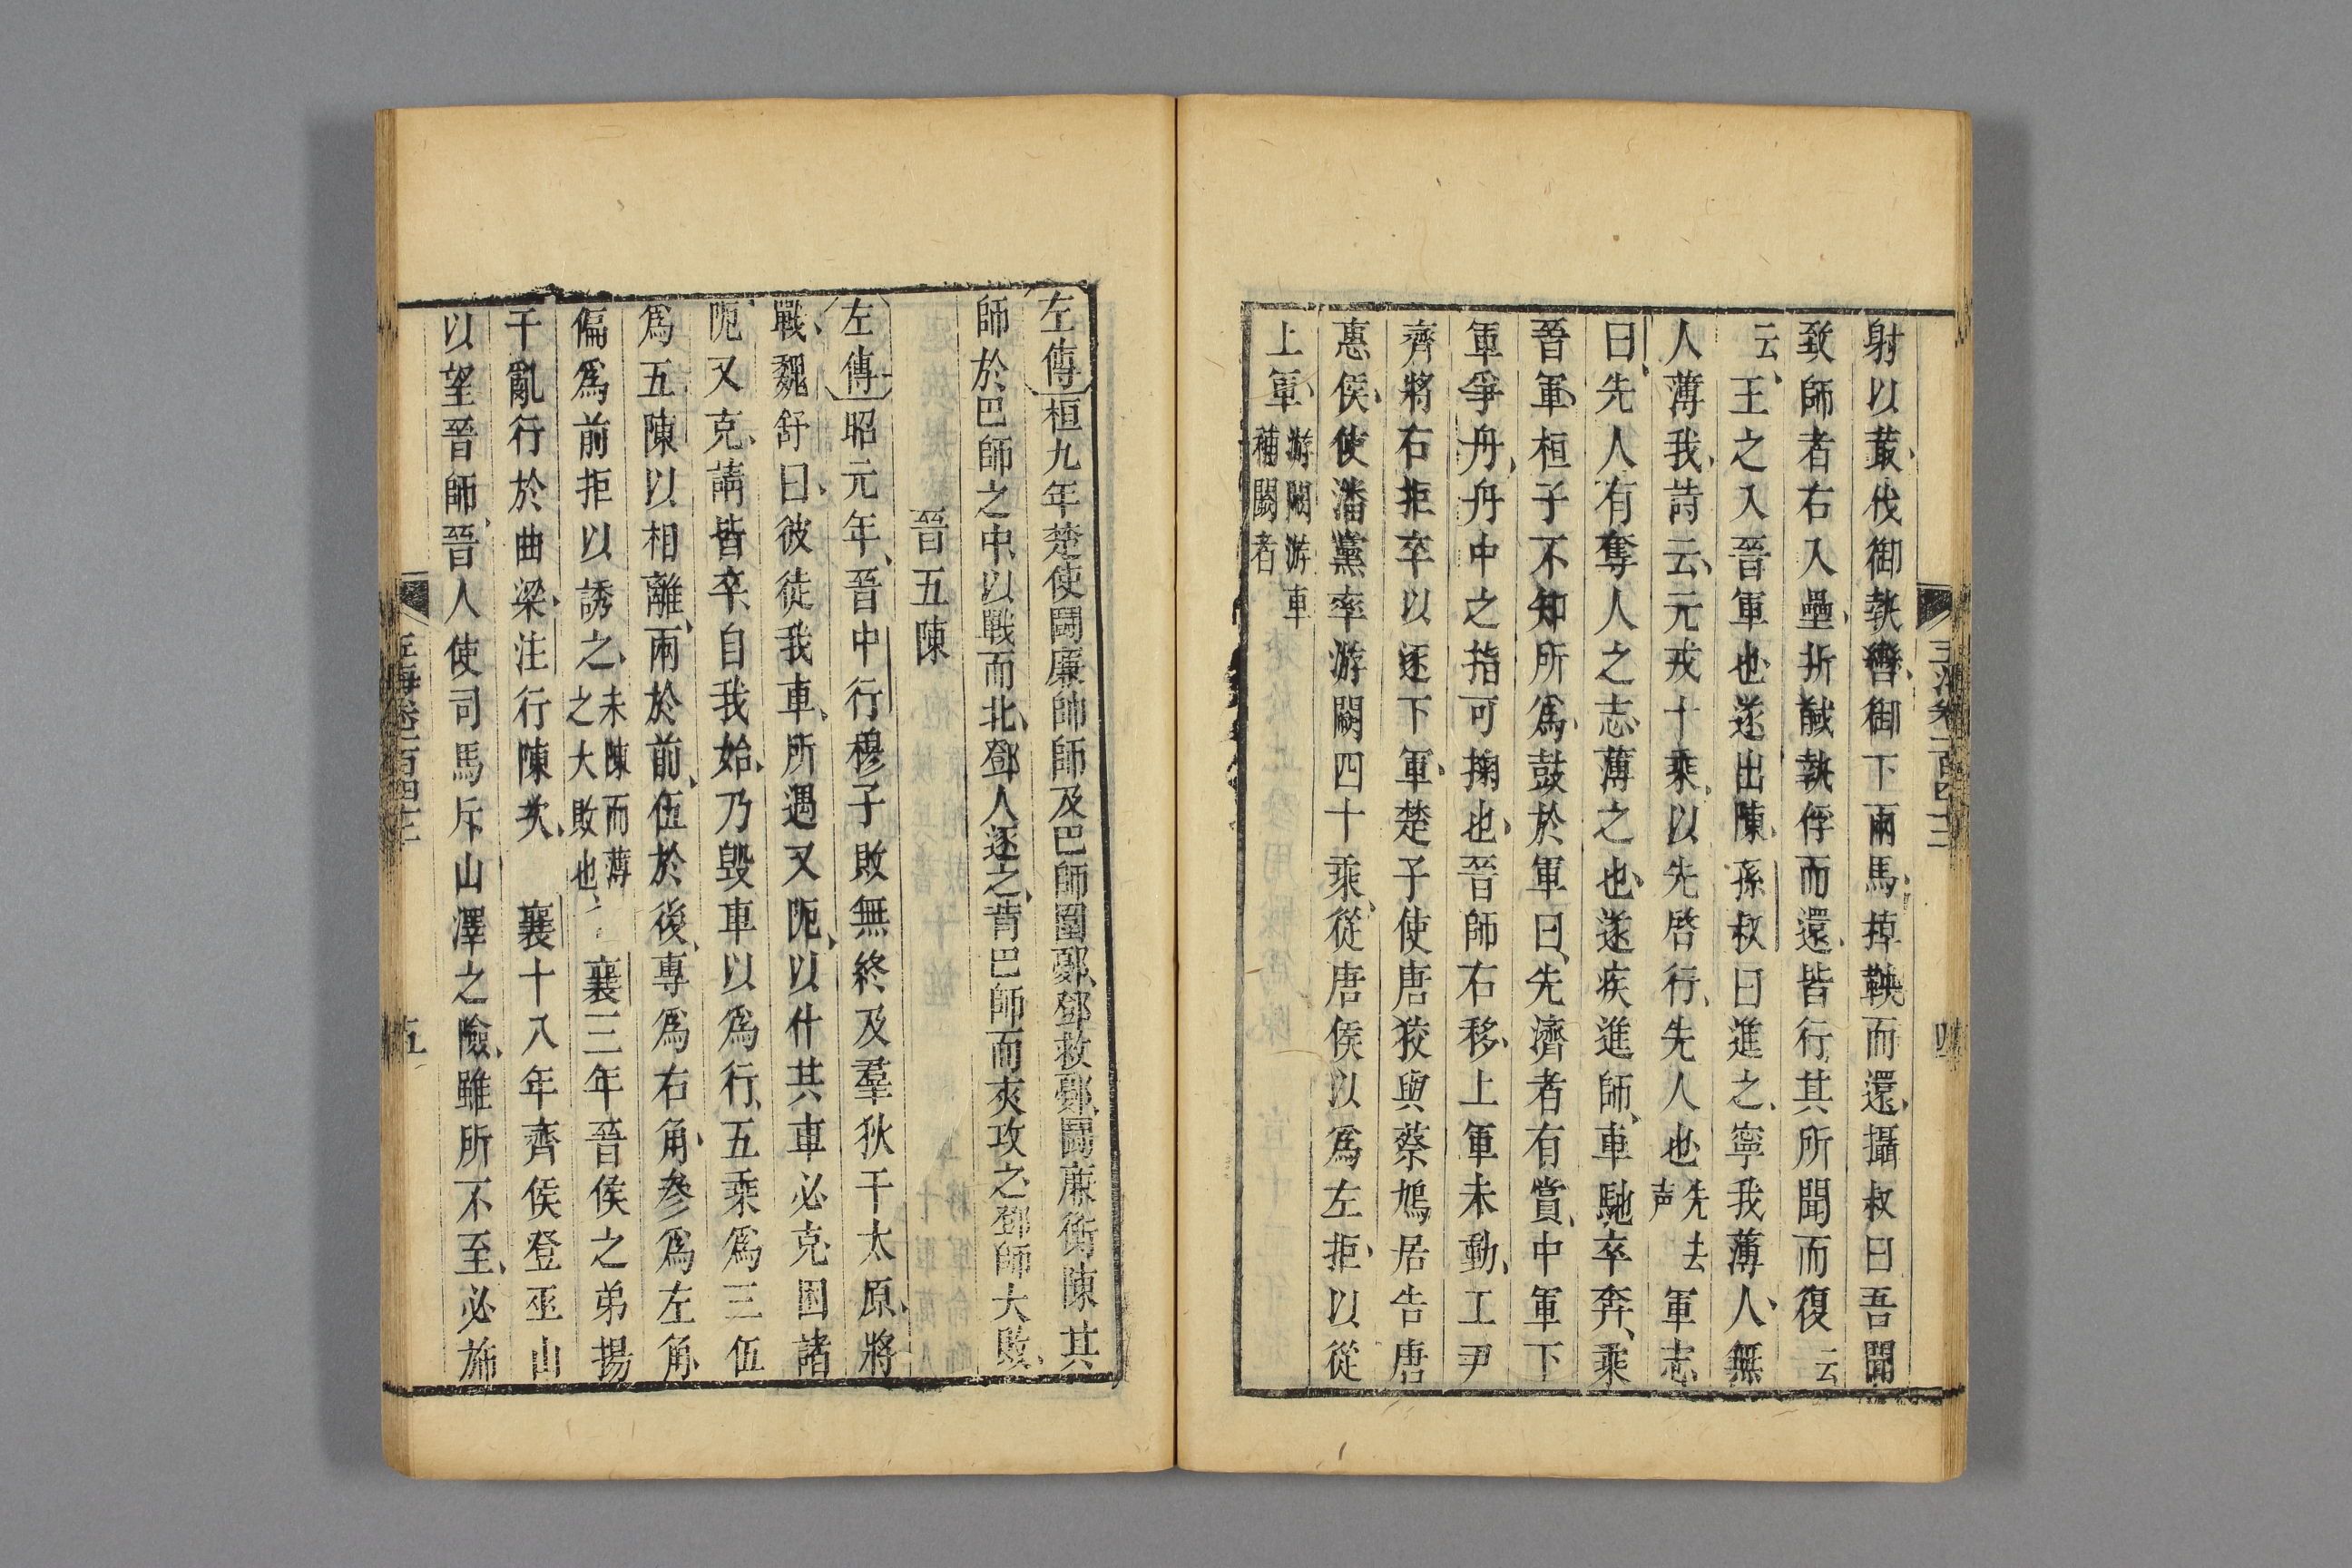 射以菆伐御執轡御下兩馬掉鞅而還攝叔曰吾聞
致師者右入壘折馘執俘而還皆行其所聞而復云
云王之入晉軍也遂出陳孫叔曰進之寧我薄人無
人薄我詩云元戎十乘以先啓行先人也先去声軍志
曰先人有奪人之志薄之也遂疾進師車馳卒奔乘
晉軍桓子不知所爲鼓於軍曰先濟者有賞中軍下
軍爭舟舟中之指可掬也晉師右移上軍未動工尹
齊將右拒卒以逐下軍楚子使唐狡與蔡鳩居告唐
惠侯使潘黨率游闕四十乘從唐侯以爲左拒以從
上軍游闕游車補闕者
玉海卷一百四十三 四
左傳桓九年楚使鬭廉帥師及巴師圍鄾鄧救鄾鬭廉衡陳其
師於巴師之中以戰而北鄧人逐之背巴師而夾攻之鄧師大敗
晉五陳
左傳昭元年晉中行穆子敗無終及羣狄于太原將
戰魏舒曰彼徒我車所遇又阨以什共車必克困諸
阨又克請皆卒自我始乃毀車以爲行五乘爲三伍
爲五陳以相離兩於前伍於後專爲右角參爲左角
偏爲前拒以誘之未陳而薄之大敗也襄三年晉侯之弟揚
干亂行於曲梁注行陳次 襄十八年齊侯登巫山
以望晉師晉人使司馬斥山澤之險雖所不至必施
玉海卷一百四十三 五